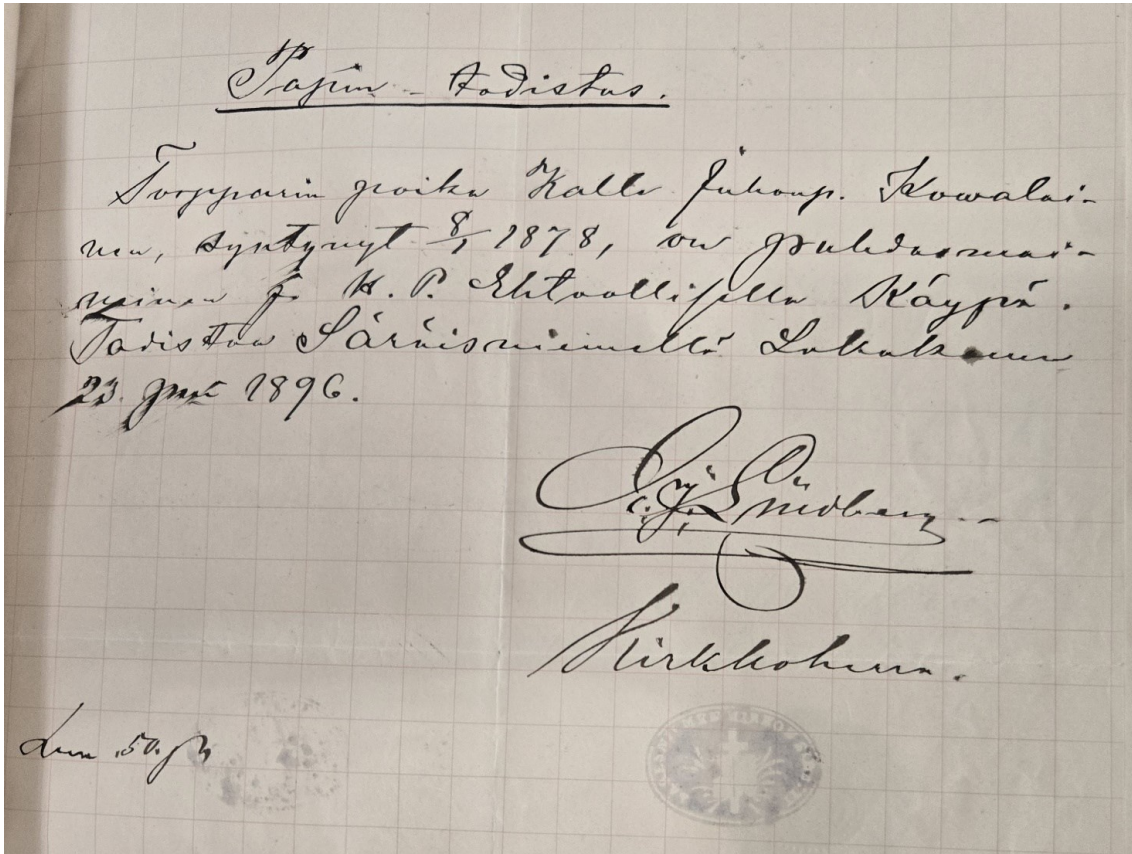 Papin-todistus.
Torpparin poika Kalle Juhonp. Kowalai-
nen, syntynyt 8/1 1878, on puhdasmai-
neinen ja H. P. Ehtoollisella Käypä.
Todistaa Säräisniemellä Lokakuun
23 p:nä 1896.
Lindberg
Kirkkoherra.
Lun. 50. p: